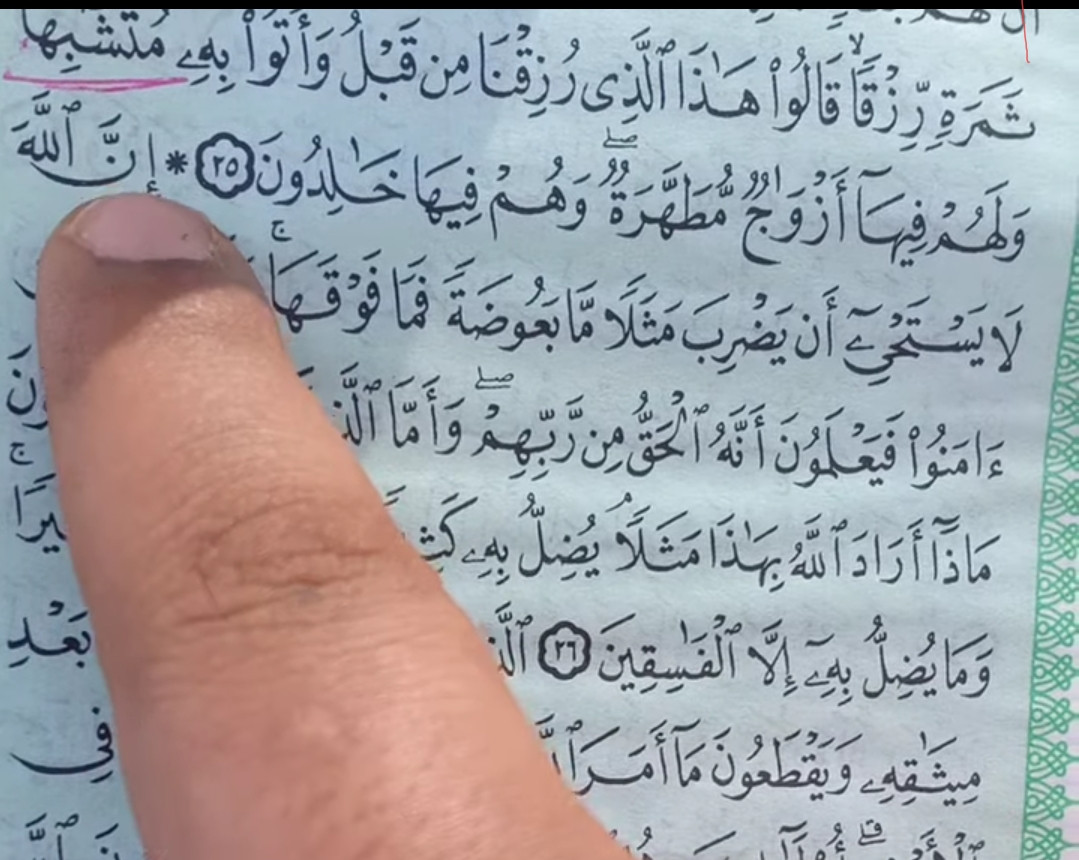 ثَمَرَةٍ رِّزْقًا ۙ قَالُوا۟ هَـٰذَا ٱلَّذِى رُزِقْنَا مِن قَبْلُ وَأُتُوا۟ بِهِۦ مُتَشَـٰبِهًا
وَلَهُمْ فِيهَآ أَزْوَٰجٌ مُّطَهَّرَةٌ ۖ وَهُمْ فِيهَا خَـٰلِدُونَ ٢٥ * إِنَّ ٱللَّهَ
لَا يَسْتَحْىِۦٓ أَن يَضْرِبَ مَثَلًا مَّا بَعُوضَةً فَمَا فَوْقَهَا ۚ
ءَامَنُوا۟ فَيَعْلَمُونَ أَنَّهُ ٱلْحَقُّ مِن رَّبِّهِمْ ۖ وَأَمَّا
مَاذَآ أَرَادَ ٱللَّهُ بِهَـٰذَا مَثَلًا ۘ يُضِلُّ بِهِۦ
وَمَا يُضِلُّ بِهِۦٓ إِلَّا ٱلْفَـٰسِقِينَ ٢٦ بَعْدِ
مِيثَـٰقِهِۦ وَيَقْطَعُونَ مَآ أَمَرَ فِى